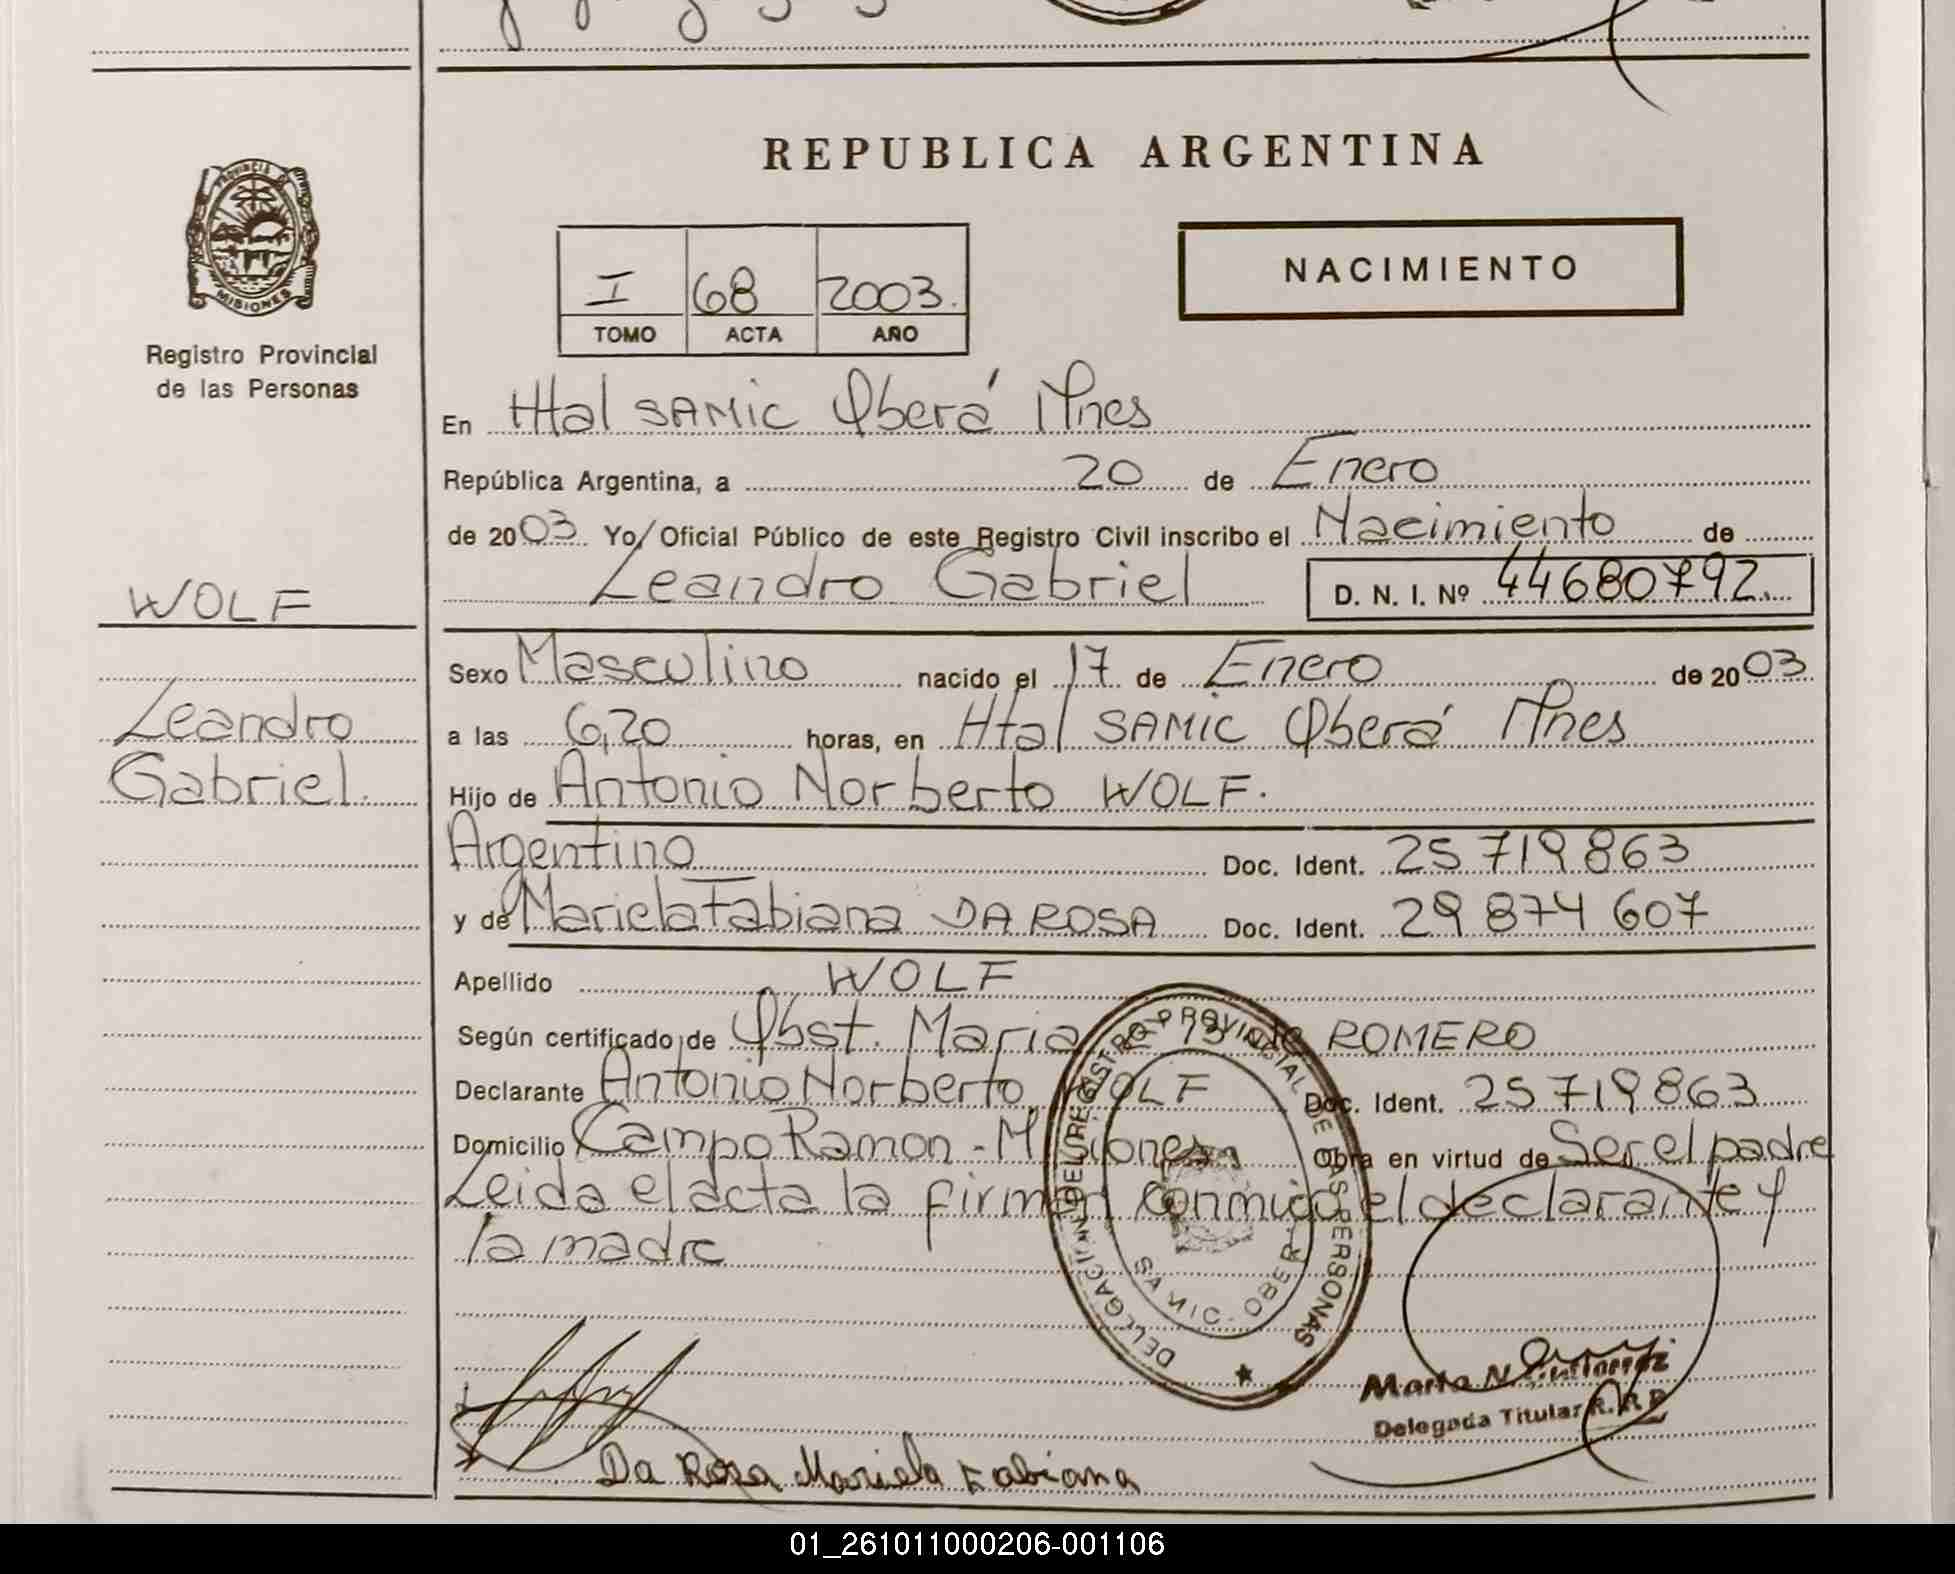 PROVINCIA DE
MISIONES
Registro Provincial
de las Personas
WOLF
Leandro
Gabriel.
REPUBLICA ARGENTINA
I 68 2003.
TOMO ACTA AÑO
NACIMIENTO
En Htal SAMIC Oberá Mnes
República Argentina, a 20 de Enero
de 2003 Yo, Oficial Público de este Registro Civil inscribo el Nacimiento de
Leandro Gabriel D. N. I. Nº 44680792.
Sexo Masculino nacido el 17 de Enero de 2003
a las 6,20 horas, en Htal SAMIC Oberá Mnes
Hijo de Antonio Norberto WOLF.
Argentino Doc. Ident. 25 719 863
y de Mariela Fabiana DA ROSA Doc. Ident. 29 874 607
Apellido WOLF
Según certificado de Obst. Maria de ROMERO
Declarante Antonio Norberto WOLF Doc. Ident. 25 719 863
Domicilio Campo Ramon - Misiones Obra en virtud de Ser el padre
Leida el acta la firman conmigo el declarante y
la madre
DELEGACION DEL REGISTRO PROVINCIAL DE LAS PERSONAS
SAMIC - OBERA
Marta N. Gutierrez
Delegada Titular R.P.P
Da Rosa Mariela Fabiana
01_261011000206-001106